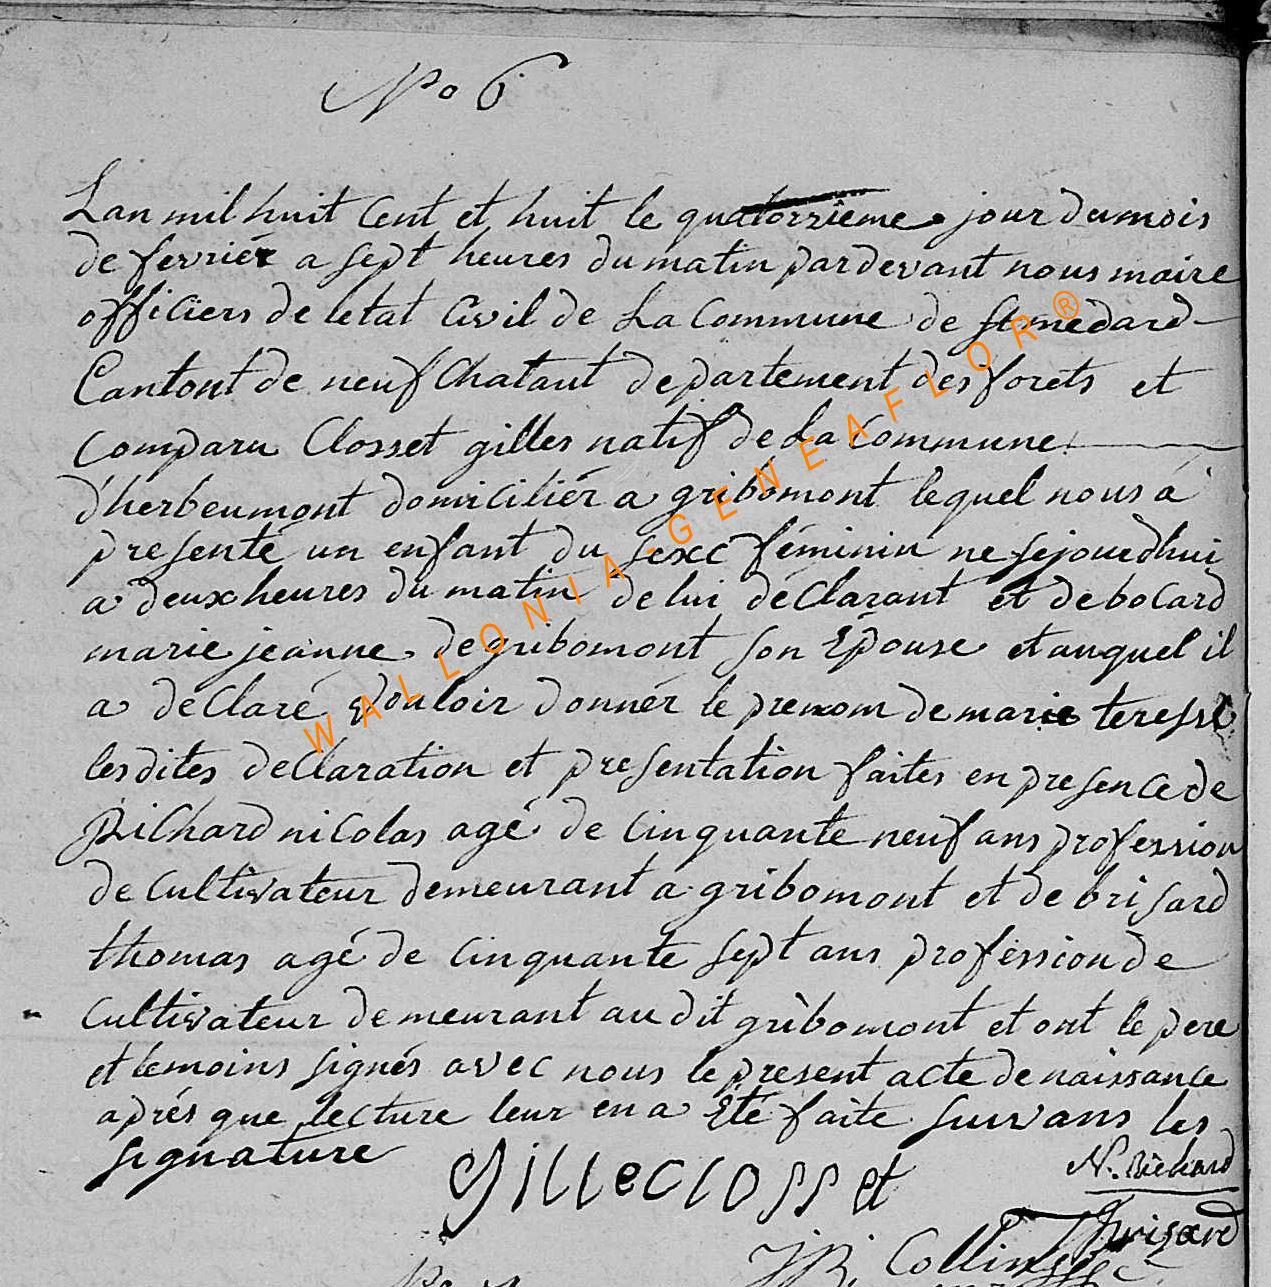 No 6
Lan mil huit Cent et huit le quatorzieme jour du mois
de fevriér a sept heures du matin par devant nous maire
officiers de letat Civil de La Commune de St medard
Cantont de neufChataut departement des forets et
Comparu Closset gilles natif de La Commune
d'herbeumont domiciliér a gribomont lequel nous a
presenté un enfant du sexe féminin ne sejouedhui
a deux heures du matin de lui deClarant et de bocard
marie jeanne de gribomont son Épouse et auquel il
a deClaré vouloir donnér le prenom de marie teresse
lesdites deClaration et presentation faites en presence de
RiChard nicolas agé de cinquante neuf ans profession
de Cultivateur demeurant a gribomont et de brisard
thomas agé de cinquante sept ans profession de
Cultivateur demeurant au dit gribomont et ont le pere
et temoins signés avec nous le present acte de naissance
aprés que lecture leur en a Été faite suivans les
signature
gilleclosset
N. Richard
Thrisard
J B Collin
WALLONIA-GENEAFLOR®